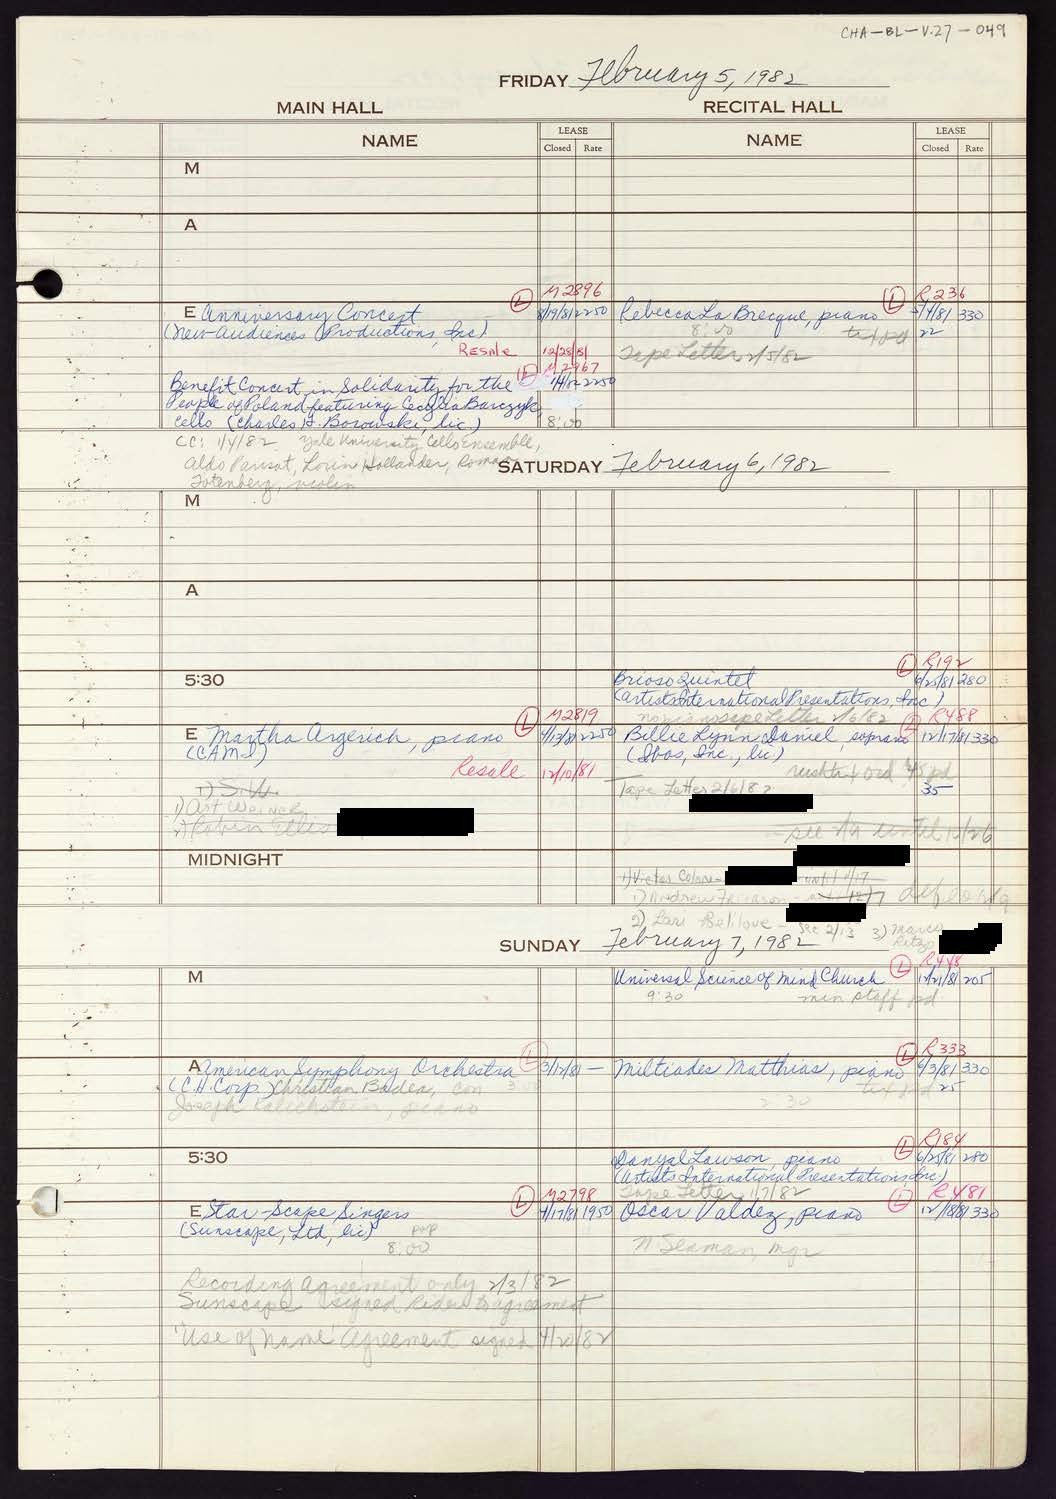 CHA-BL-V.27-049
FRIDAY February 5, 1982
MAIN HALL RECITAL HALL
NAME LEASE NAME LEASE
Closed Rate Closed Rate
M
A
L M2896 L R236
E Anniversary Concert 8/19/81 2250 Rebecca La Brecque, piano 5/4/81 330
(New Audiences Productions, Inc) 8:00 txt pd 22
Resale 12/28/81 Tape Letter 2/5/82
L M2967
Benefit Concert in Solidarity for the 1/4/82 2250
People of Poland featuring Cecylia Barczyk,
cello (Charles H. Borowski, lic.) 8:00
CC: 1/4/82 Yale University Cello Ensemble,
Aldo Parisot, Lorin Hollander, Roman
Totenberg, violin
SATURDAY February 6, 1982
M
A
L R192
5:30 Brioso Quintet 6/25/81 280
(Artists International Presentations, Inc)
L M2819 no piano Tape Letter 2/6/82 L R488
E Martha Argerich, piano 4/13/81 2250 Billie Lynn Daniel, soprano 12/17/81 330
(CAMI) (Ibos, Inc., lic)
Resale 12/10/81 rush txt ord 45 pd
1) S.H. Tape Letter 2/6/82 35
1) Art Weiner
2) Robin Ellis
see until
MIDNIGHT
1) Victor Colone - until 11/17
1) Andrew 12/7
2) Lari Belilove - see 2/13 3) Marco
SUNDAY February 7, 1982
L R448
M Universal Science of Mind Church 205
9:30 min staff pd
L L R333
American Symphony Orchestra 3/17/81 — Miltiades Matthias, piano 9/3/81 330
(C.H. Corp.) Christian Badea, con 3:00 txt pd 25
Joseph Kalichstein, piano 2:30
L R184
5:30 Danyal Lawson, piano 6/25/81 280
(Artists International Presentations, Inc)
L M2798 Tape Letter 1/7/82 L R481
E Star-Scape Singers 1950 Oscar Valdez, piano 12/18/81 330
(Sunscape, Ltd, lic) pop
8:00 N Seaman, mgr
Recording Agreement only 2/3/82
Sunscape signed Rider to agreement
"Use of Name" Agreement signed 4/20/82